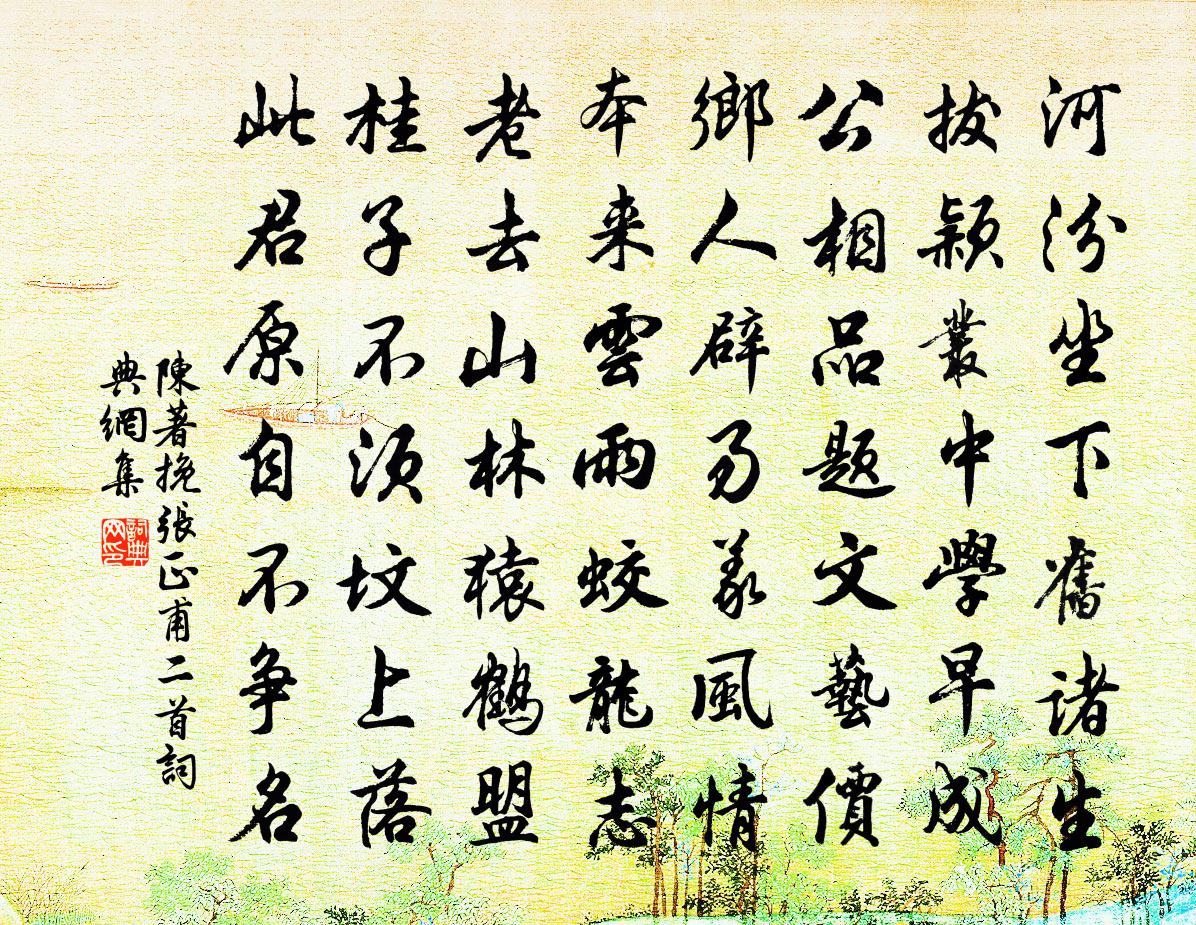 河汾坐下舊諸生
拔穎叢中學早成
公相品題文藝價
鄉人辟易義風情
本来雲雨蛟龍志
老去山林猿鶴盟
桂子不須坟上落
此君原自不爭名
陳著挽張正甫二首詞
典網集
詞典
网印